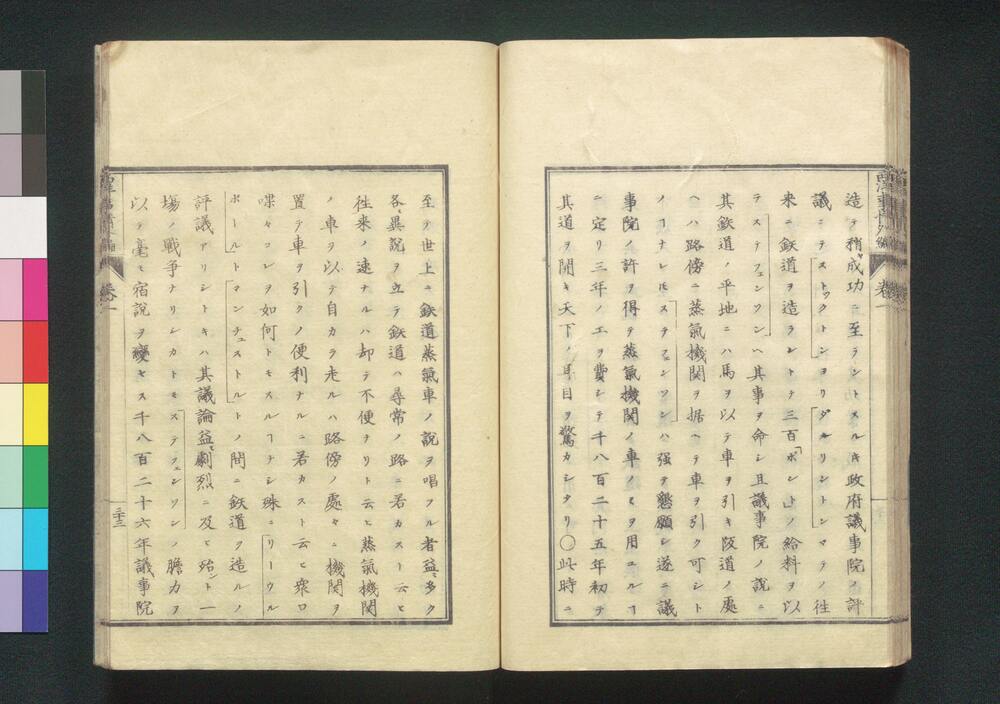 造テ稍成功ニ至ラントスルキ政府議事院ノ評
議ニテストックトンヨリダルリントンマテノ往
来ニ鉄道ヲ造ラントテ三百「ポント」ノ給料ヲ以
テステフェンソンヘ其事ヲ命シ且議事院ノ説ニ
其鉄道ノ平地ニハ馬ヲ以テ車ヲ引キ阪道ノ處
ヘハ路傍ニ蒸氣機関ヲ据ヘテ車ヲ引ク可シト
ノヿナレ𪜈ステフェンソンハ强テ懇願シ遂ニ議
事院ノ許ヲ得テ蒸氣機関ノ車ノミヲ用ユルヿ
ニ定リ三年ノ工ヲ費シテ千八百二十五年初テ
其道ヲ開キ天下ノ耳目ヲ驚カシタリ〇此時ニ
至テ世上ニ鉄道蒸氣車ノ説ヲ唱フル者益多ク
各異説ヲ立テ鉄道ハ尋常ノ路ニ若カスト云ヒ
往来ノ速ナルハ却テ不便ヲリト云ヒ蒸氣機関
ノ車ヲ以テ自カラ走ルハ路傍ノ處々ニ機関ヲ
置テ車ヲ引クノ便利ナルニ若カスト云ヒ衆口
喋々コレヲ如何トモスルヿナシ殊ニリーウル
ポールトマンチェストルトノ間ニ鉄道ヲ造ルノ
評議アリシトキハ其議論益劇烈ニ及ヒ殆ント一
場ノ戦争ナリシカトモステフェンソンノ膽力ヲ
以テ毫モ宿説ヲ變セス千八百二十六年議事院
巻一
三十三